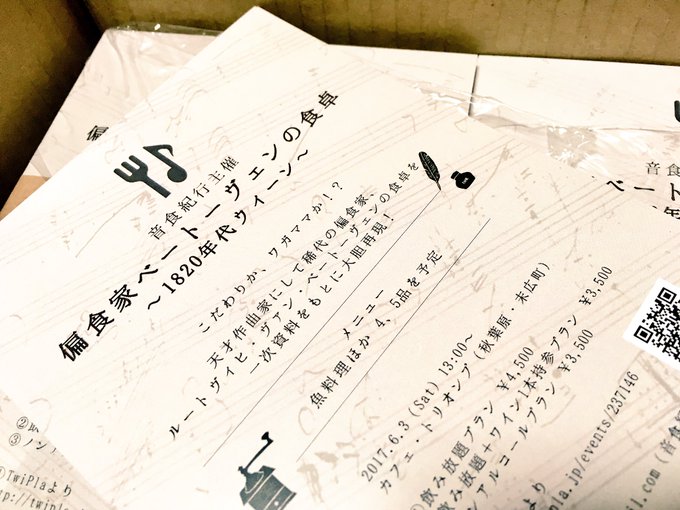 音食紀行主催
偏食家ベートーヴェンの食卓
～1820年代ウィーン～
こだわりか、ワガママか！？
天才作曲家にして稀代の偏食家、
ルートヴィヒ・ヴァン・ベートーヴェンの食卓を
一次資料をもとに大胆再現！
メニュー
魚料理ほか 4、5品を予定
2017.6.3 (Sat) 13:00～
カフェ・トリオンプ (秋葉原・末広町)
①飲み放題プラン ¥4,500
飲み放題＋ワイン1本持参プラン ¥3,500
ンアルコールプラン ¥3,500
pla.jp/events/237146
il.com (音食
②
③ノン
①TwiPlaより
tp://twipla
音食
ベート